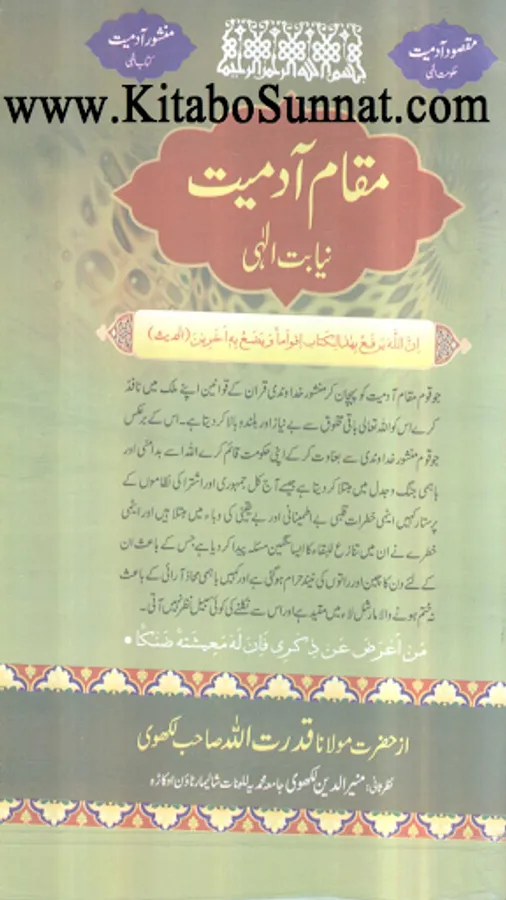 منشور آدمیت
کتاب الٰہی
بسم الله الرحمن الرحيم
مقصود آدمیت
حکومت الٰہی
www.KitaboSunnat.com
مقام آدمیت
نیابت الٰہی
اِنَّ اللّٰهَ يَرْفَعُ بِهٰذَا الْكِتَابِ اَقْوَاماً وَ يَضَعُ بِهٖ اٰخَرِيْنَ (الحدیث)
جو قوم مقام آدمیت کو پہچان کر منشور خداوندی قرآن کے قوانین اپنے ملک میں نافذ
کرے اس کو اللہ تعالیٰ باقی مخلوق سے بے نیاز اور بلند و بالا کر دیتا ہے۔ اس کے برعکس
جو قوم منشور خداوندی سے بغاوت کر کے اپنی حکومت قائم کرے اللہ اسے بدامنی اور
باہمی جنگ و جدل میں مبتلا کر دیتا ہے جیسے آج کل جمہوری اور اشتراکی نظاموں کے
پرستار کہیں ایٹمی خطرات قلبی بے اطمینانی اور بے یقینی کی وباء میں مبتلا ہیں اور ایٹمی
خطرے نے ان میں تنازع للبقاء کا ایسا سنگین مسئلہ پیدا کر دیا ہے جس کے باعث ان
کے لئے دن کا چین اور راتوں کی نیند حرام ہو گئی ہے اور کہیں باہمی محاذ آرائی کے باعث
نہ ختم ہونے والا مارشل لاء میں مقید ہے اور اس سے نکلنے کی کوئی سبیل نظر نہیں آتی۔
مَنْ اَعْرَضَ عَنْ ذِكْرِىْ فَاِنَّ لَهٗ مَعِيْشَةً ضَنْكًا
از حضرت مولانا قدرت اللہ صاحب لکھوی
نظرثانی: منیر الدین لکھوی جامعہ محمدیہ للبنات شالیمار ٹاؤن اوکاڑہ